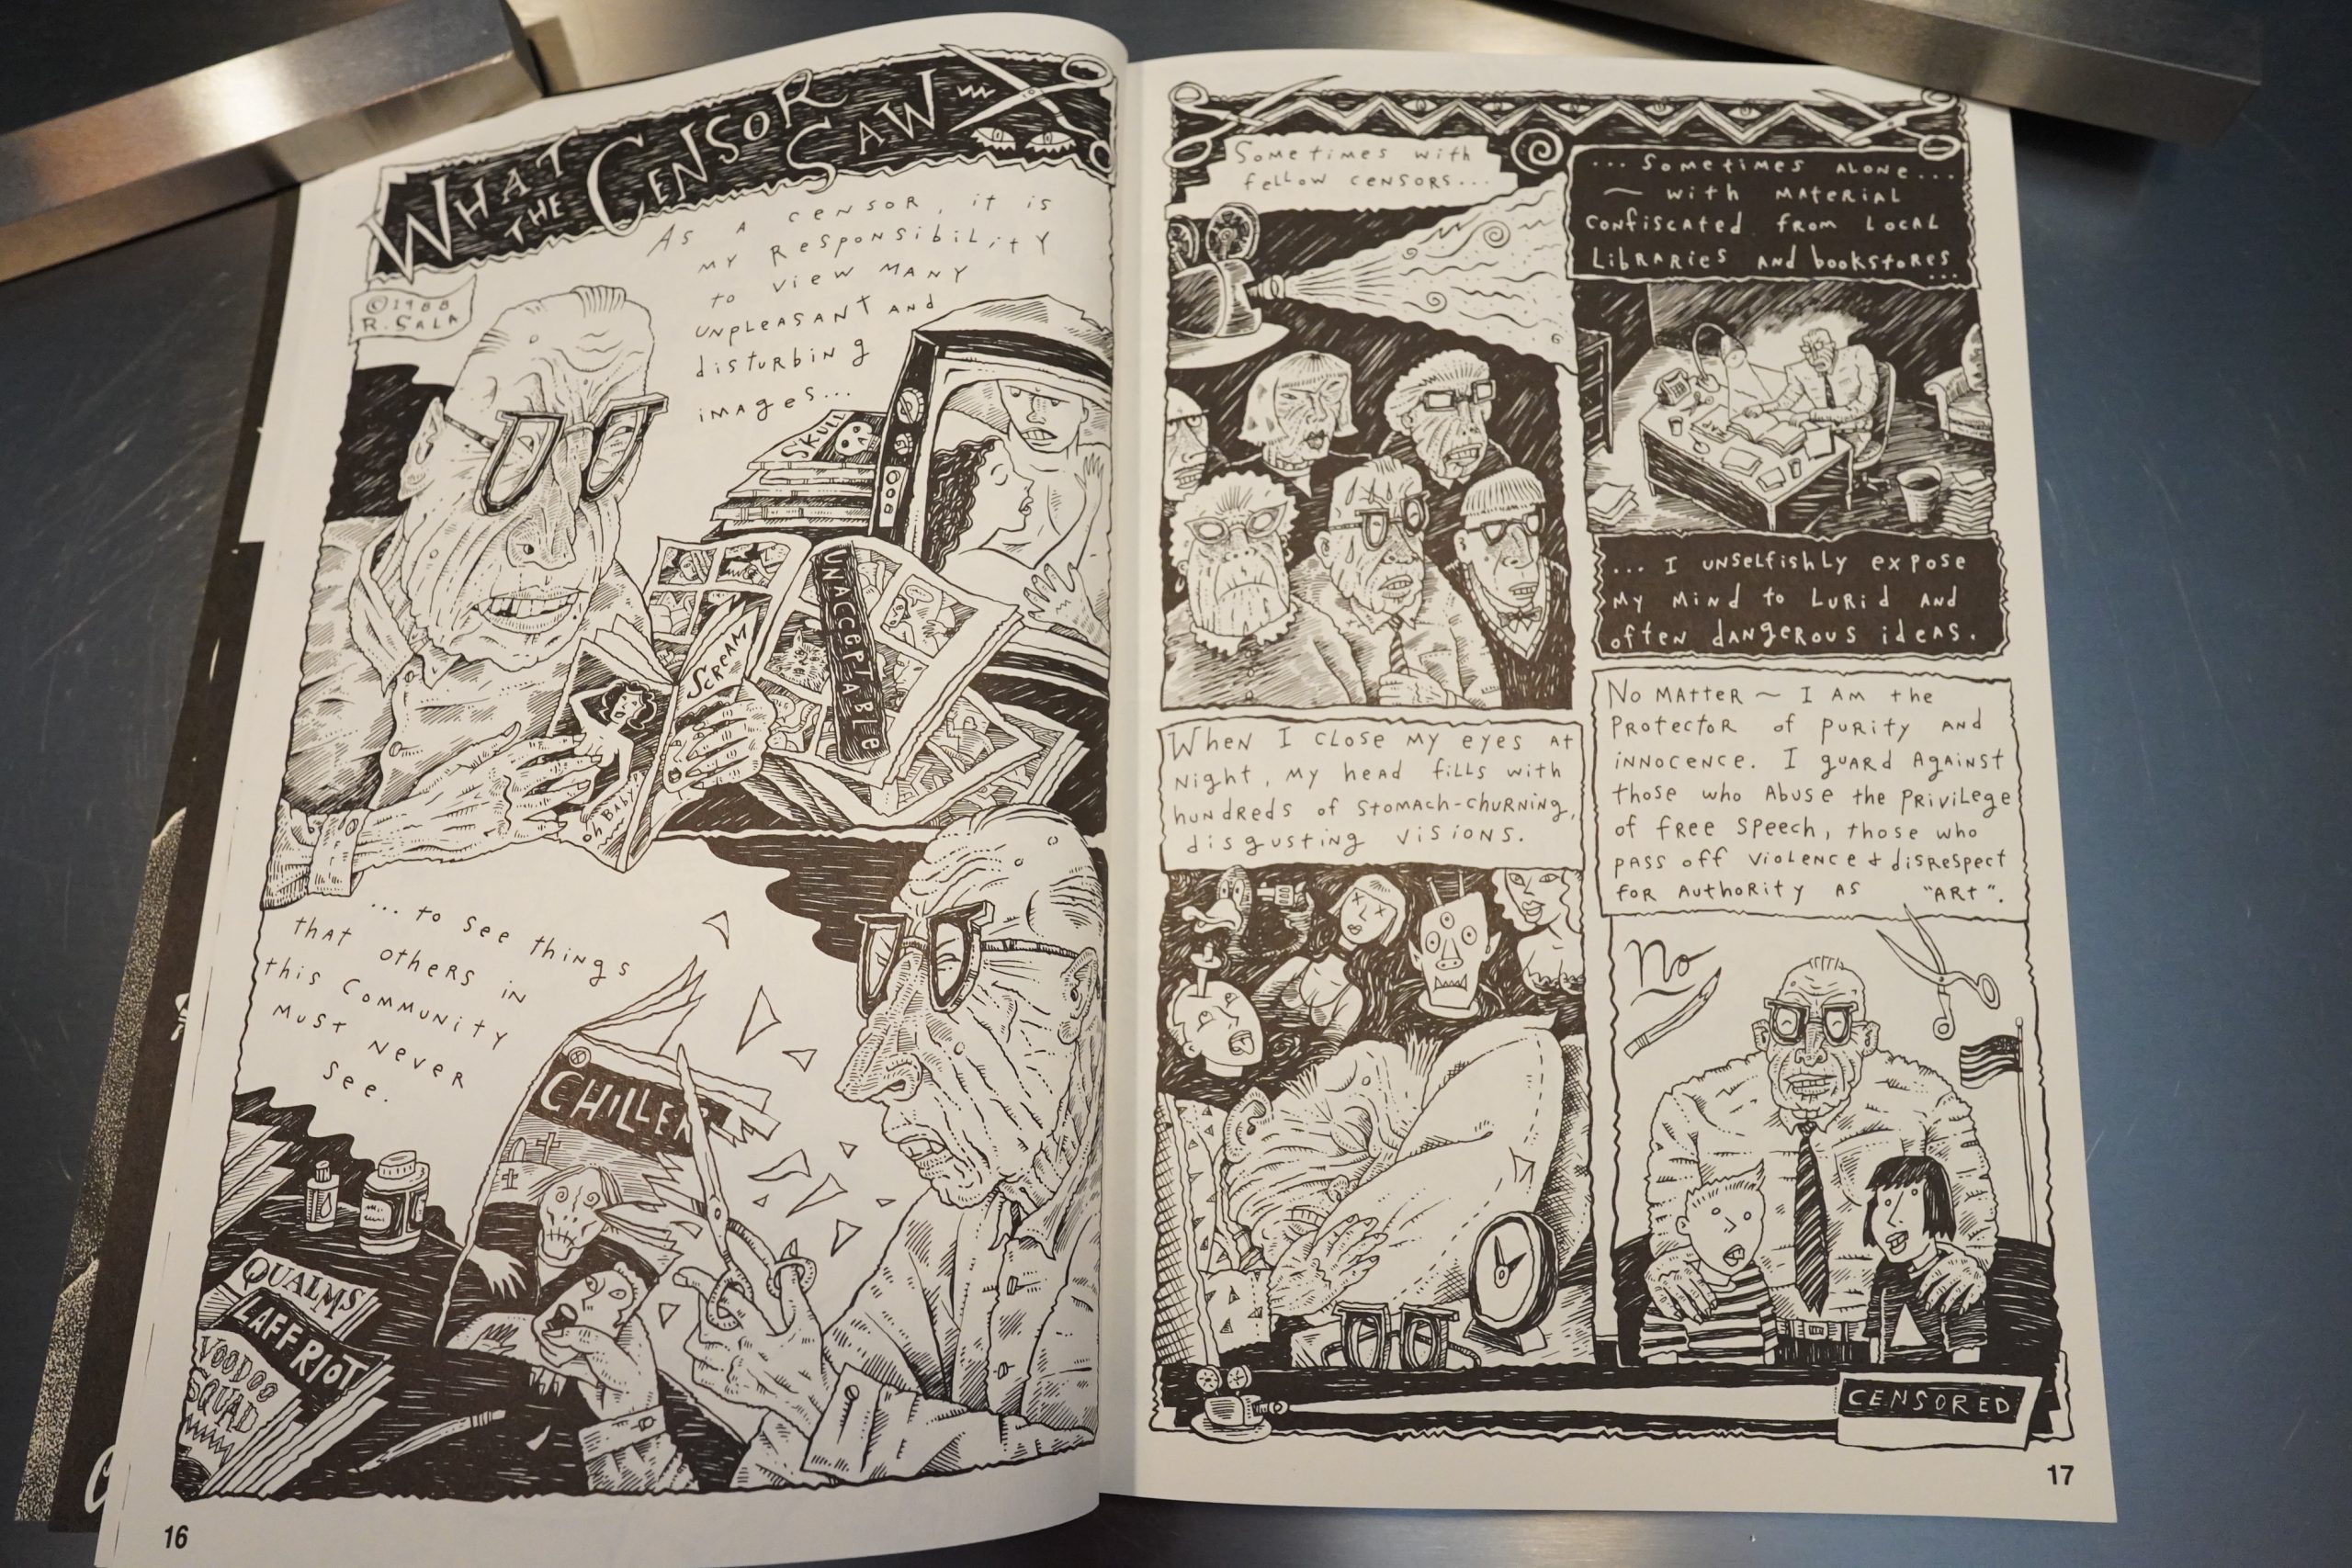 WHAT
THE CENSOR
SAW
©1988
R. SALA
AS A CENSOR, it is
MY RESPONSIBILITY
to VIEW MANY
UNPLEASANT AND
disturbing
iMAges...
SKULL
UNACCEPTABLE
SCREAM
oh BABY!
...to see things
THAT others in
this COMMUNITY
MUST NEVER
See.
CHILLER
QUALMS
LAFF RIOT
VOODOO
SQUAD
16
Sometimes with
fellow CENSORS...
...Sometimes ALONE...
~ with MATERIAL
CONfiscated from LOCAL
LibRARies AND bookstores
...
... I UNSelfishly expose
MY MiNd to LURid AND
often dANgeROUS ideAS.
WHEN I CLOSE MY eyes AT
Night, MY head fills with
hUNdReds of StoMACH-CHURNiNg,
disgusting VISIONS.
NO MAtteR ~ I AM the
PROtectoR of PURitY AND
iNNOCENCE. I gUARd AgAiNST
those who AbUSE the PRiViLege
of fRee Speech, those who
PASS off VioLeNCe & disRespect
foR AUthORitY AS "ARt".
No
CENSORED
17